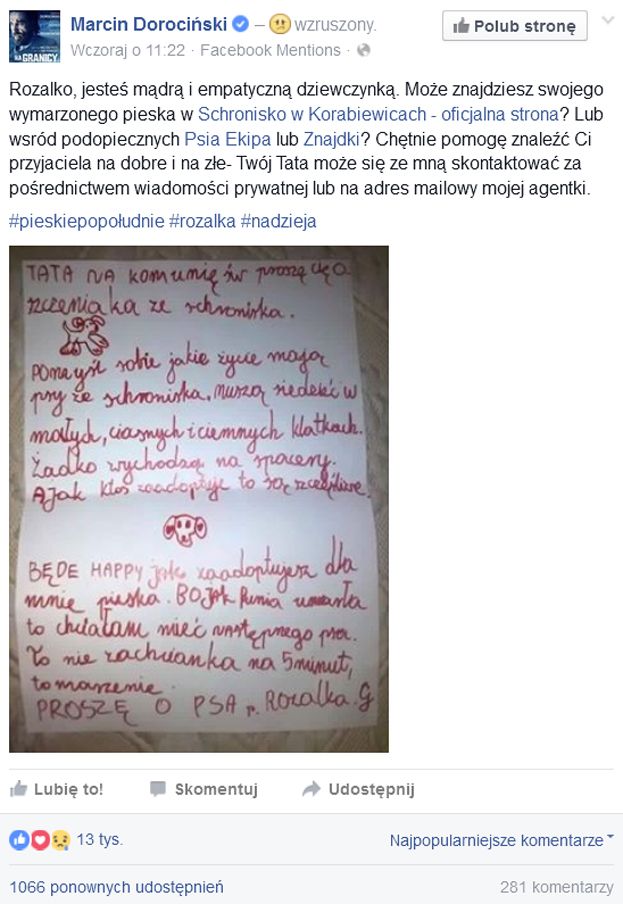 NA GRANICY
Marcin Dorociński – wzruszony.
Polub stronę
Wczoraj o 11:22 · Facebook Mentions ·
Rozalko, jesteś mądrą i empatyczną dziewczynką. Może znajdziesz swojego
wymarzonego pieska w Schronisko w Korabiewicach - oficjalna strona? Lub
wsród podopiecznych Psia Ekipa lub Znajdki? Chętnie pomogę znaleźć Ci
przyjaciela na dobre i na złe- Twój Tata może się ze mną skontaktować za
pośrednictwem wiadomości prywatnej lub na adres mailowy mojej agentki.
#pieskiepopołudnie #rozalka #nadzieja
TATA NA komunię św proszę cię o
szczeniaka ze schroniska.
POMYśl sobie jakie życie mają
psy ze schroniska. muszą siedzieć w
małych, ciasnych i ciemnych klatkach.
Żadko wychodzą na spacery.
A jak ktoś zaadoptuje to są szczęśliwe.
BĘDE HAPPY jak zaadoptujesz dla
mnie pieska. BO Jak Runia umarła
to chciałam mieć następnego psa.
To nie zachcianka na 5 minut,
to marzenie.
PROSZĘ O PSA p. Rozalka. G
Lubię to! Skomentuj Udostępnij
13 tys. Najpopularniejsze komentarze
1066 ponownych udostępnień 281 komentarzy